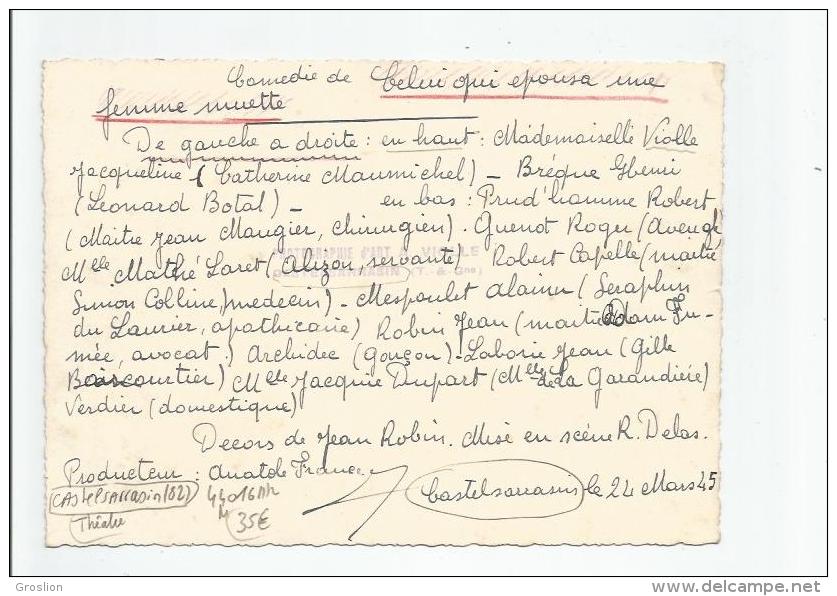 Comédie de Celui qui epousa une
femme muette
De gauche a droite : en haut : Mademoiselle Violle
Jacqueline (Catherine Maumichel) - Bréque
(Leonard Botal) - en bas : Prud'homme Robert
(Maitre Jean Maugier, chirurgien). Quenot Roger (Aveugle
Mlle Mathé Laret (Alizon, servante) Robert Capelle (maitre
Simon Colline, medecin) - Mespoulet Alain (Seraphin
du Laurier, apothicaire) Robin Jean (maitre Adam Fu-
mée, avocat) Archidec (Garçon) - Laborie Jean (Gille
Boiscourtier) Mlle Jacquie Dupart (Mlle de la Garandière)
Verdier (domestique)
Decors de Jean Robin. Mise en scène R. Delas.
Producteur : Anatole France
Castelsarrasin le 24 Mars 45
CAstelsARRAsin (82)
Théatre
35€
PHOTOGRAPHIE D'ART
(T.-&-Gne)
Groslion
www.delcampe.net